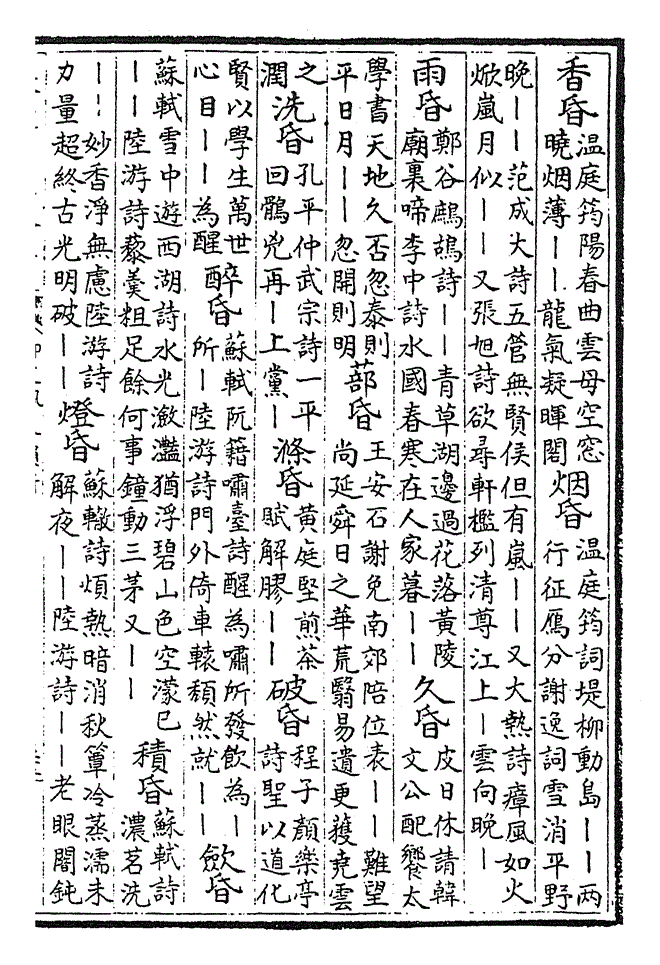 香昏
温庭筠陽春曲雲母空窓
曉烟薄丨丨龍氣凝暉閤
烟昏
温庭筠詞堤柳動島丨丨兩
行征鴈分謝逸詞雪消平野
晚丨丨范成大詩五管無賢侯但有嵐丨丨又大熱詩瘴風如火
焮嵐月似丨丨又張旭詩欲尋軒檻列清尊江上丨雲向晚丨
雨昏
鄭谷鷓鴣詩丨丨青草湖邊過花落黃陵
廟裏啼李中詩水國春寒在人家暮丨丨
久昏
皮日休請韓
文公配饗太
學書天地久否忽泰則
平日月丨丨忽開則明
蔀昏
王安石謝免南郊陪位表丨丨難望
尚延舜日之華荒翳易遺更穫堯雲
之
潤
洗昏
孔平仲武宗詩一平
回鶻兇再丨上黨丨
滌昏
黃庭堅煎茶
賦解膠丨丨
破昏
程子顏樂亭
詩聖以道化
賢以學生萬世
心目丨丨為醒
醉昏
蘇軾阮籍嘯臺詩醒為嘯所發飲為丨
所丨陸游詩門外倚車轅頹然就丨丨
歛昏
蘇軾雪中遊西湖詩水光瀲灩猶浮碧山色空濛已
丨丨陸游詩藜羹粗足餘何事鐘動三茅又丨丨
積昏
蘇軾詩
濃茗洗
丨丨妙香淨無慮陸游詩
力量超終古光明破丨丨
燈昏
蘇轍詩煩熱暗消秋簟冷蒸濡未
解夜丨丨陸游詩丨丨老眼闇鈍